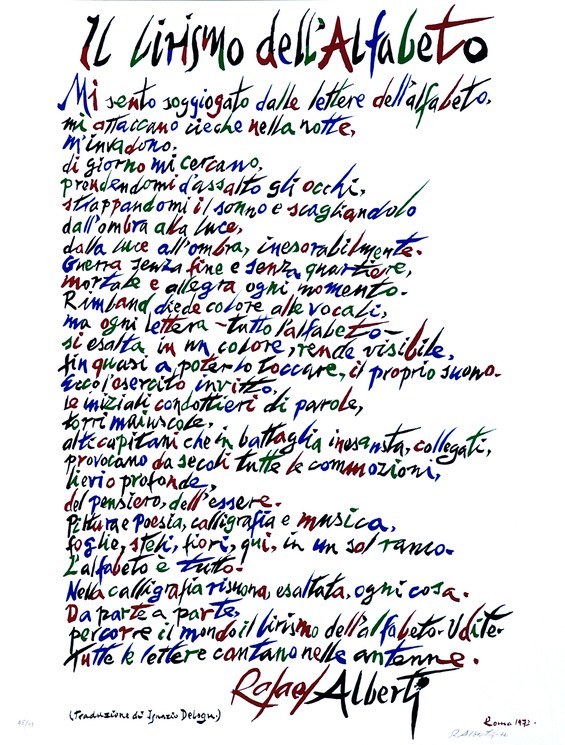 Il lirismo dell'Alfabeto
Mi sento soggiogato dalle lettere dell'alfabeto,
mi attaccano cieche nella notte,
m'invadono.
di giorno mi cercano,
prendendomi d'assalto gli occhi,
strappandomi il sonno e scagliandolo
dall'ombra alla luce,
dalla luce all'ombra, inesorabilmente.
Guerra senza fine e senza quartiere,
mortale e allegra ogni momento.
Rimbaud diede colore alle vocali,
ma ogni lettera - tutto l'alfabeto -
si esalta in un colore, rende visibile,
fin quasi a poterlo toccare, il proprio suono.
Ecco l'esercito invitto,
le iniziali condottieri di parole,
torri maiuscole,
alti capitani che in battaglia inesausta, collegati,
provocano da secoli tutte le commozioni,
lievi o profonde,
del pensiero, dell'essere.
Pittura e Poesia, calligrafia e musica,
foglie, steli, fiori, qui, in un sol ramo.
L'alfabeto è tutto.
Nella calligrafia risuona, esaltata, ogni cosa.
Da parte a parte,
percorre il mondo il lirismo dell'alfabeto. Udite.
Tutte le lettere cantano nelle antenne.
Rafael Alberti
(Traduzione di Ignazio Delogu.)
Roma 1972.
R. Alberti